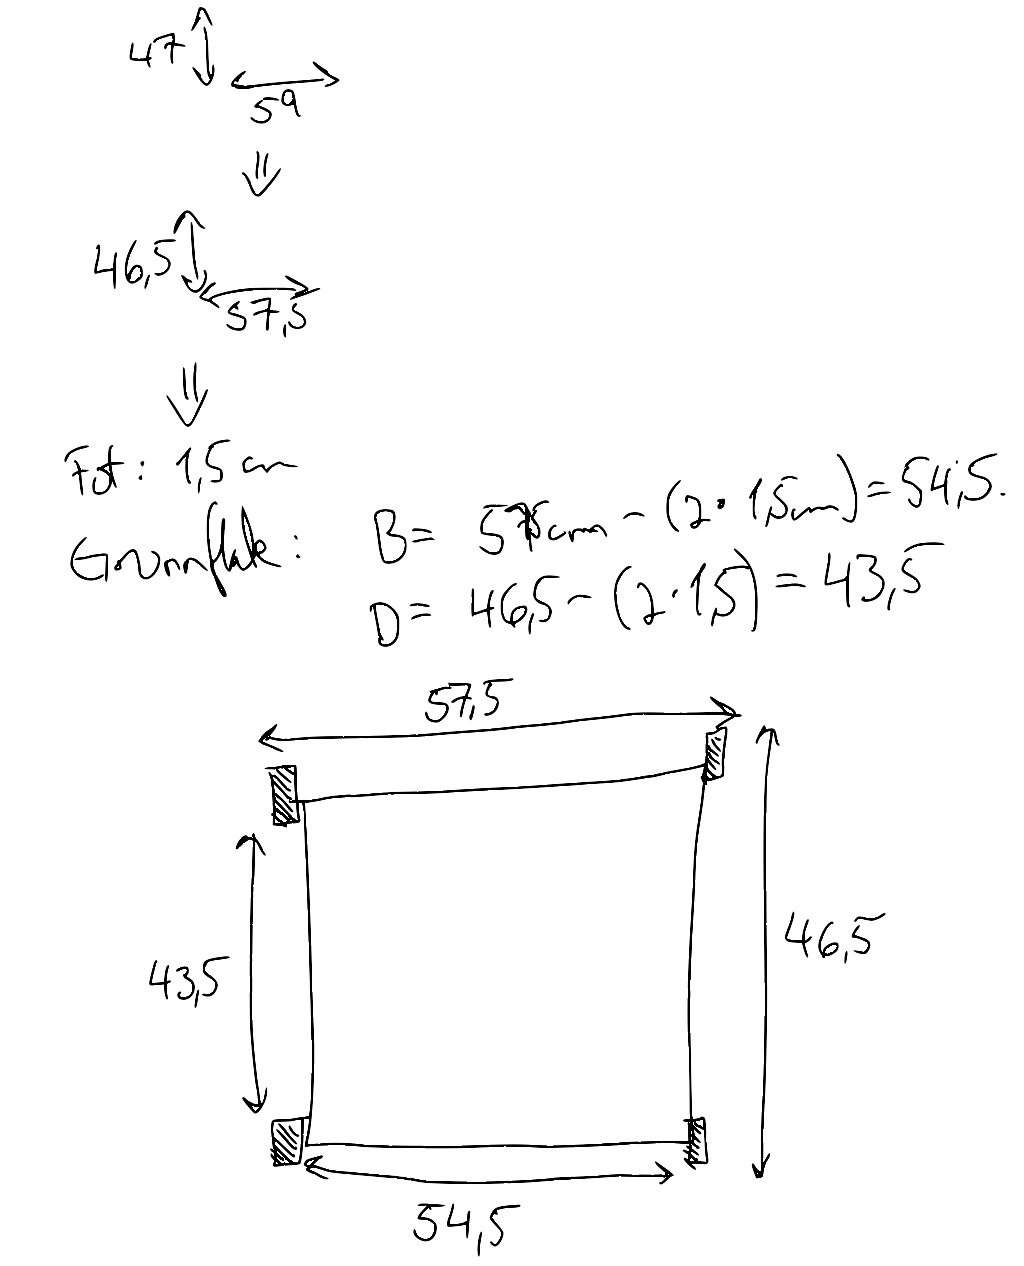 47
59
⇓
46,5
57,5
⇓
Fot: 1,5 cm
Grunnflate: B= 57,5cm - (2·1,5cm) = 54,5.
D= 46,5 - (2·1,5) = 43,5
57,5
43,5
46,5
54,5